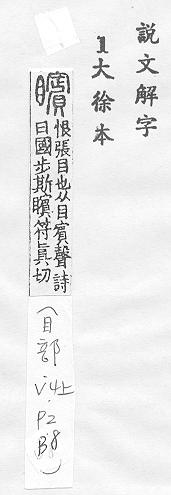 説文解字
1大徐本
矉 恨張目也从目賓聲詩
曰國步斯矉符眞切
(目部
v.4上
P2
B8)